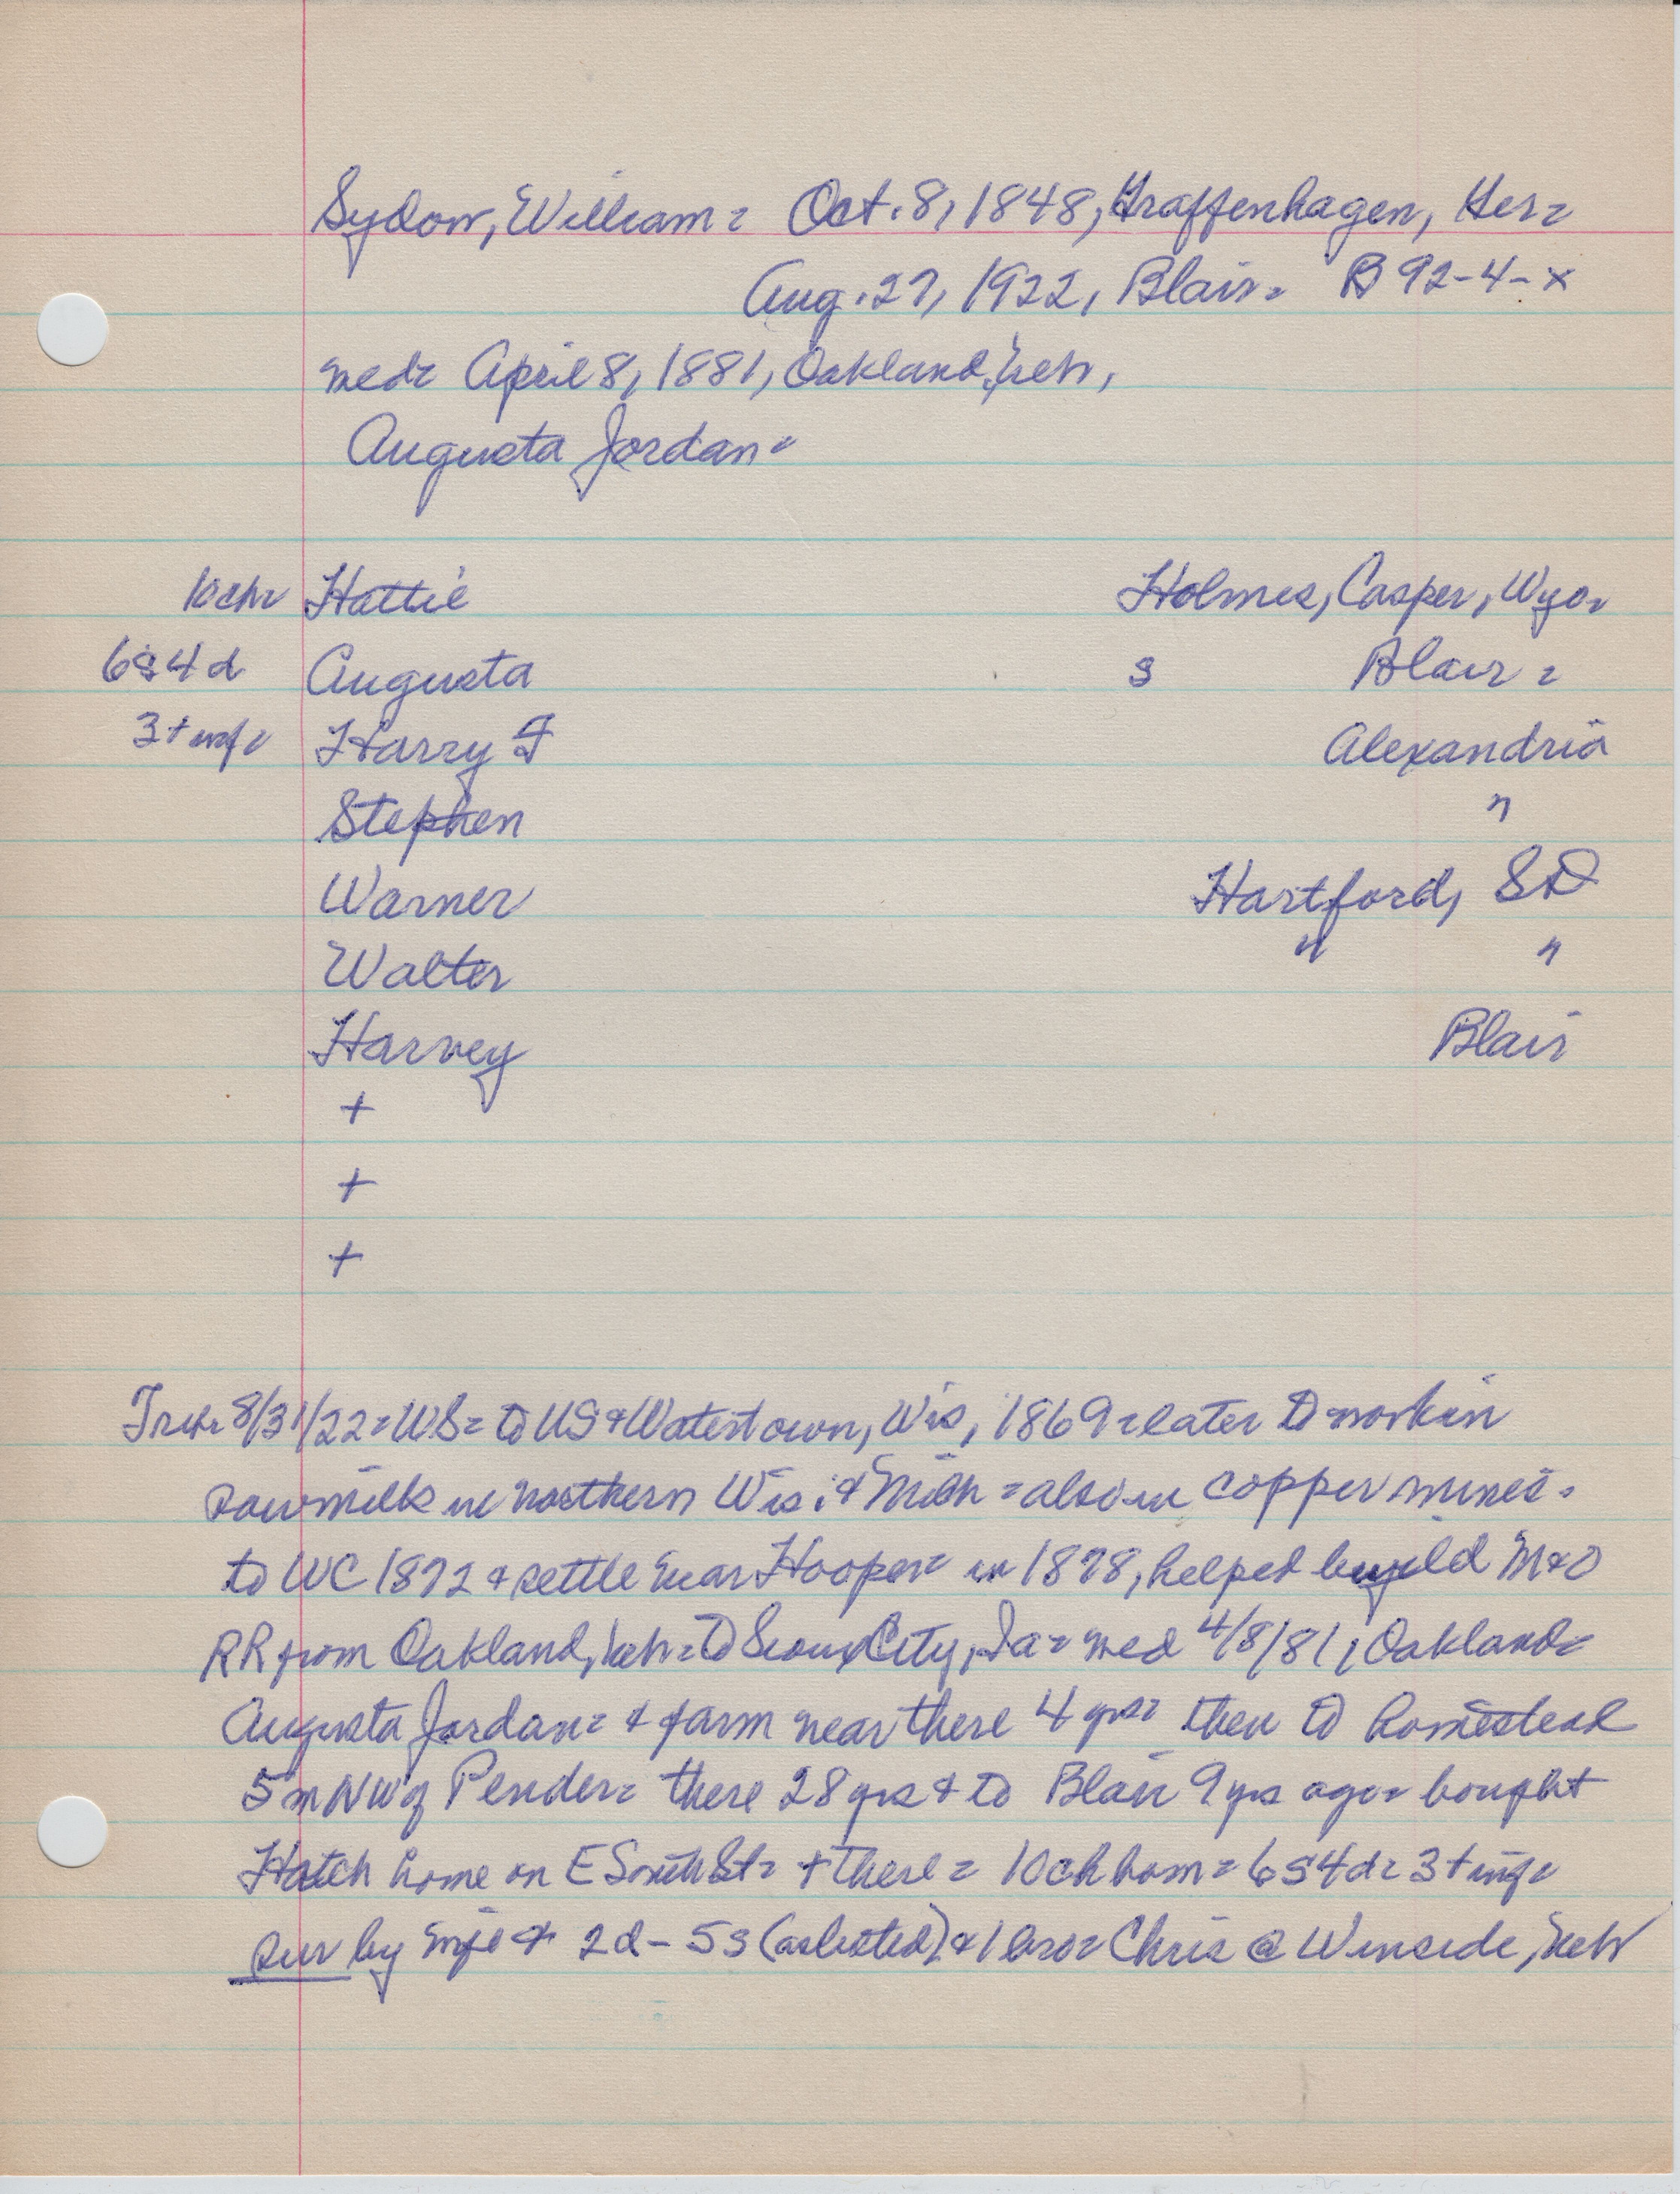 Sydow, William = Oct. 8, 1848, Graffenhagen, Ger =
Aug. 27, 1922, Blair = B 92-4-x
med = April 8, 1881, Oakland, Neb,
Augusta Jordan =
10 ch = Hattie Holmes, Casper, Wyo =
6s 4d Augusta s Blair =
3 + inf = Harry F Alexandria
Stephen "
Warner Hartford, SD
Walter " "
Harvey Blair
+
+
+
Trib = 8/31/22 = WS = to US & Watertown, Wis, 1869 = later to work in
sawmills in northern Wis. & Mich = also in copper mines =
to WC 1872 & settle near Hooper = in 1878, helped build M&O
RR from Oakland, Neb = to Sioux City, Ia = med 4/8/81, Oakland =
Augusta Jordan = & farm near there 4 yrs = then to homestead
5 m NW of Pender = there 28 yrs & to Blair 9 yrs ago = bought
Hatch home on E South St = + there = 10 ch born = 6s 4d = 3 + inf =
sur by wife & 2d - 5s (as listed) & 1 bro = Chris @ Winside, Neb